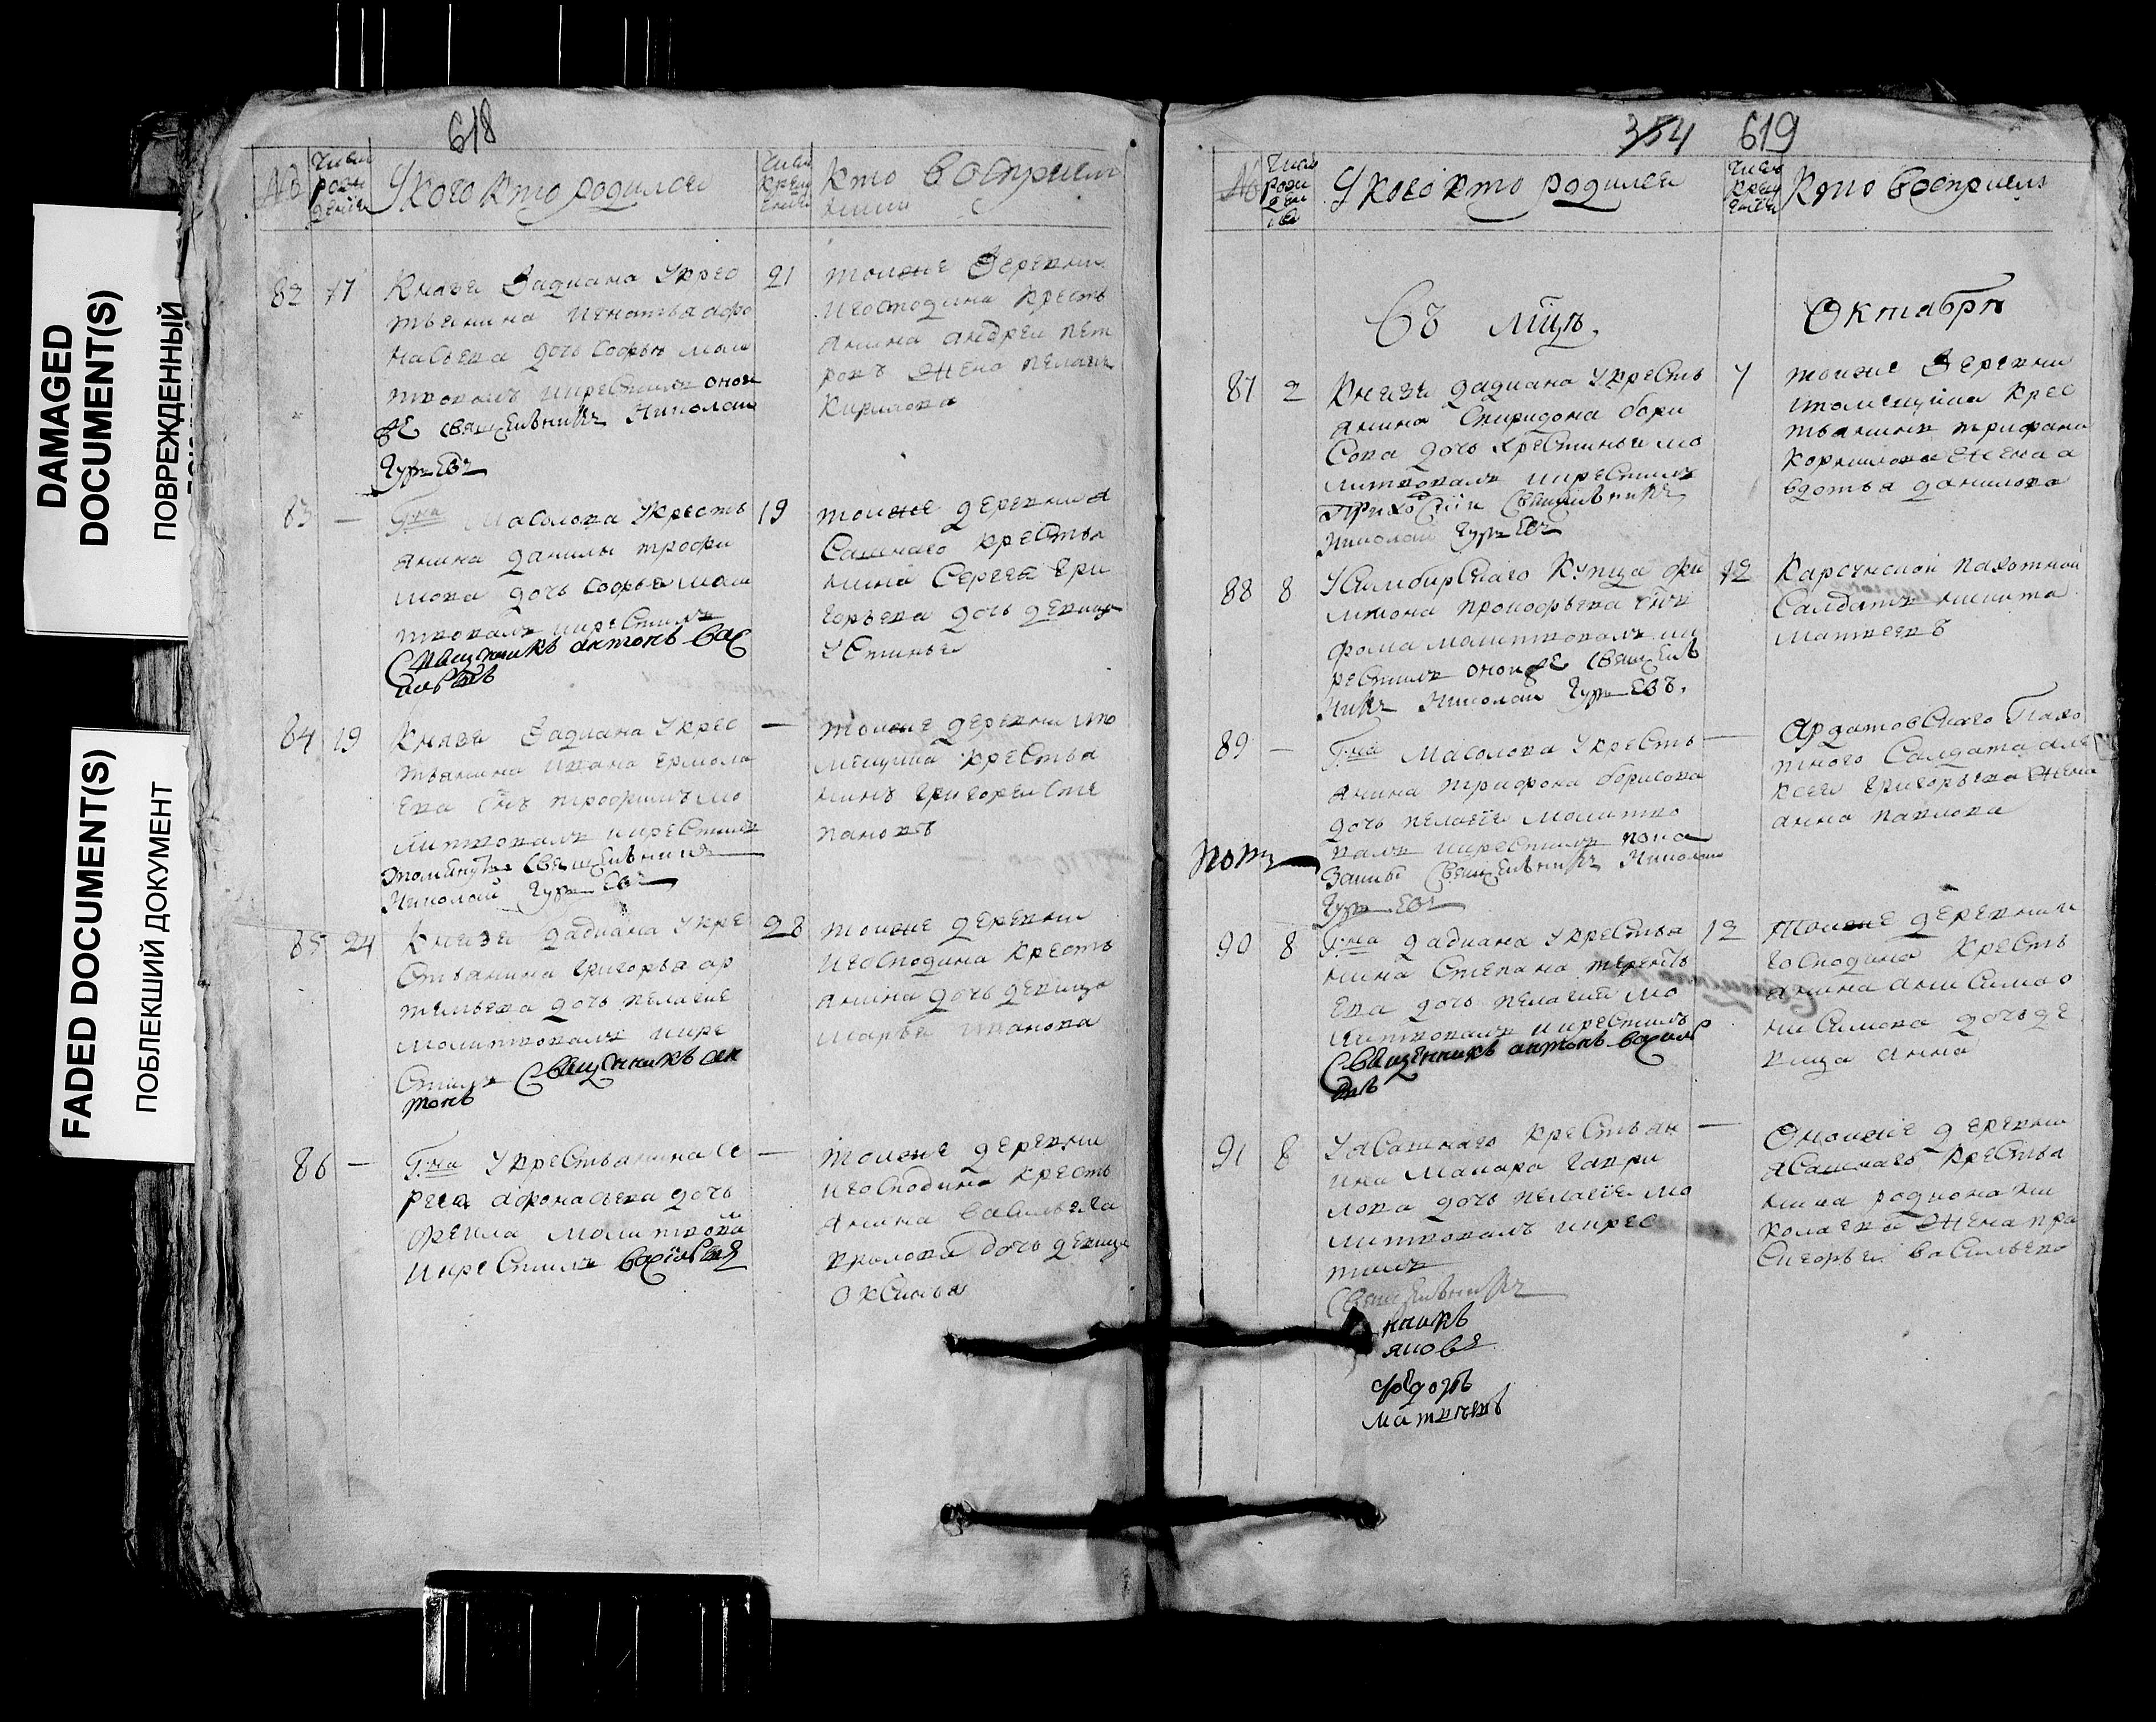 DAMAGED
DOCUMENT(S)
ПОВРЕЖДЕННЫЙ
FADED DOCUMENT(S)
ПОБЛЕКШИЙ ДОКУМЕНТ
618
№
Число
рож
дения
У кого кто родился
Число
крещ
ения
кто восприем
ники
82 17
Князя Дадиана у крес
тьянина Игнатья Афо
насьева дочь Софья мол
твовалъ и крестилъ оной
же священникъ Николай
Гурьевъ
21
тоиже деревни
и господина кресть
янина Андрея пет
рова жена пелагея
Кирилова
83 —
Г:на Масолова у кресть
янина данилы трофи
мова дочь Софья мол
твовалъ и крестилъ
Священникъ антонъ вас
ильевъ
19
тоиже деревни я
сашнаго крестья
нина Сергея Гри
горьева дочь девица
Устинья
84 19
Князя Дадиана у крес
тьянина Ивана Ермола
ева снъ трофимъ мо
литвовалъ и крестилъ
Священникъ
Николай Гурьевъ
—
тоиже деревни по
мещика крестья
нинъ григореи Сте
пановъ
85 24
Князя дадиана у кре
стьянина Григорья ар
темьева дочь пелагие
молитвовалъ и кре
стилъ Священникъ ан
тонъ
28
тоиже деревни
и господина кресть
янина дочь девица
марья Иванова
86 —
Г:на у крестьянина Се
ргея афонасьева дочь
фекла молитвова
и крестилъ васильевъ
—
тоиже деревни
и господина кресть
янина васильева
дочь девица
Оксинья
354 619
№
Число
рож
ден
ия
У кого кто родился
Число
крещ
ения
Кто восприем
Съ мцъ. Октабря
87 2
Князя дадиана у кресть
янина Спиридона бори
сова дочь крестинья мо
литвовалъ и крестилъ
Приходскіи Священникъ
Николай Гурьевъ
7
тоиже деревни
и помещика крес
тьянина трифана
корнилова жена а
вдотья данилова
88 8
У Симбирскаго купца фи
липона прокофьева снъ
фома молитвовалъ и к
рестилъ оной же священ
никъ Николай Гурьевъ.
12
Карсунской пахотной
Салдатъ никита
матвеевъ
89 —
Г:на Масолова у кресть
янина трифона борисова
дочь пелагие молитво
валъ и крестилъ пока
Занный Священникъ Николай
Гурьевъ
—
Ардатовскаго Пахо
тного Салдата але
ксея григорьева жена
анна павлова
90 8
Г:на дадиана у крестья
нина Степана теренть
ева дочь пелагия мо
литвовалъ и крестилъ
Священникъ антонъ василь
евъ
12
Тоиже деревни и
господина кресть
янина анисима о
нисимова дочь де
вица анна
91 8
У ясашнаго крестьян
ина Макара гаври
лова дочь пелагие мо
литвовалъ и крес
тилъ
Священникъ
—
Оноиже деревни
ясашнаго крестья
нина родиона ни
колаева жена пра
сковья васильева
федотъ
матвеевъ